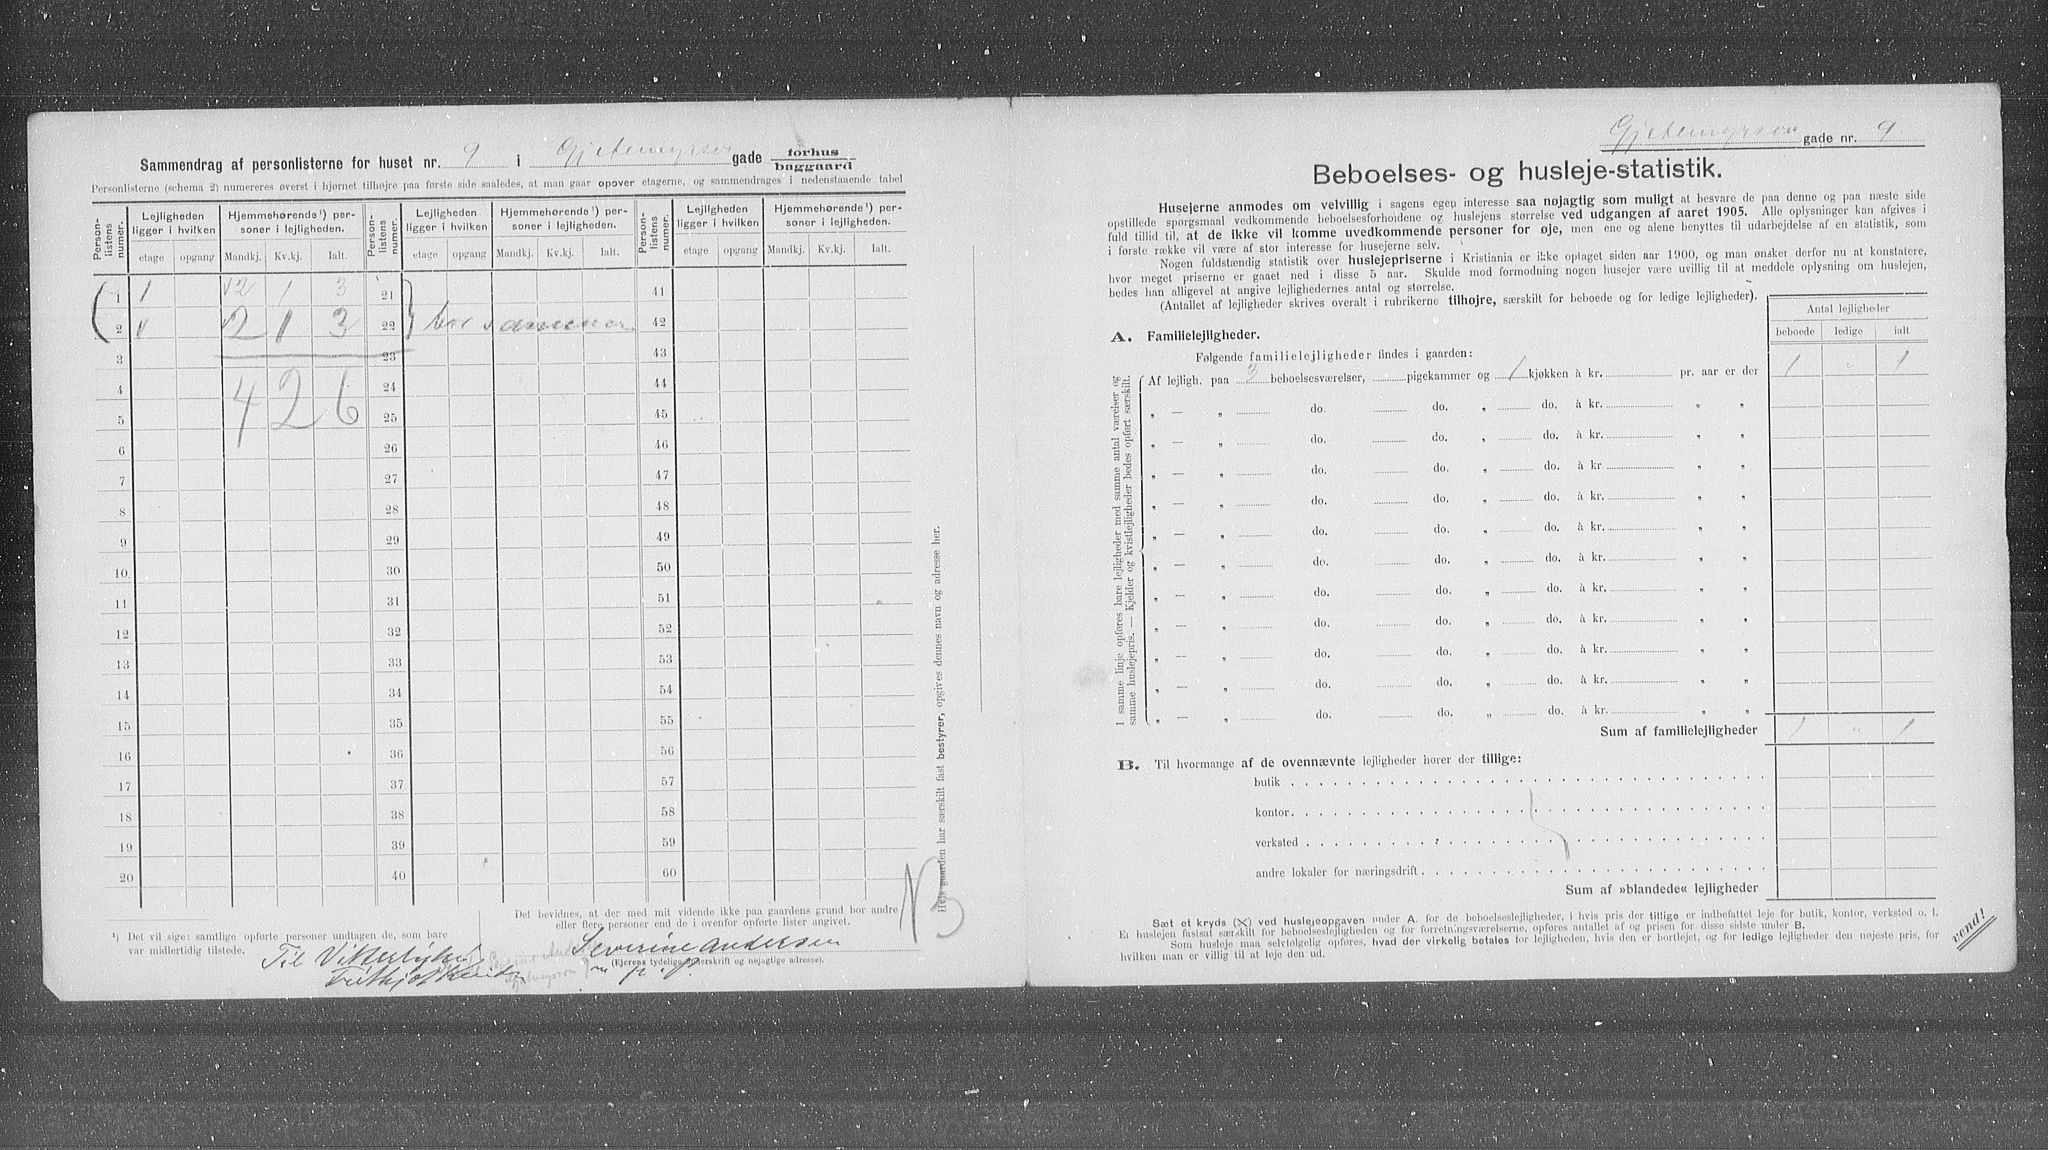 Sammendrag af personlisterne for huset nr. 9 i Gjetemyrsv gade forhus
baggaard
Personlisterne (schema 2) numereres øverst i hjørnet tilhøjre paa første side saaledes, at man gaar opover etagerne, og sammendrages i nedenstaaende tabel
Person-listens numer. Lejligheden ligger i hvilken Hjemmehørende¹) personer i lejligheden. Person-listens numer. Lejligheden ligger i hvilken Hjemmehørende¹) personer i lejligheden. Person-listens numer. Lejligheden ligger i hvilken Hjemmehørende¹) personer i lejligheden.
etage opgang Mandkj. Kv.kj. Ialt. etage opgang Mandkj. Kv.kj. Ialt. etage opgang Mandkj. Kv.kj. Ialt.
1 1 2 1 3 21 41
2 2 1 3 22 bor sammen 42
3 23 43
4 4 2 6 24 44
5 25 45
6 26 46
7 27 47
8 28 48
9 29 49
10 30 50
11 31 51
12 32 52
13 33 53
14 34 54
15 35 55
16 36 56
17 37 57
18 38 58
19 39 59
20 40 60
Hvis gaarden har særskilt fast bestyrer, opgives dennes navn og adresse her.
Det bevidnes, at der med mit vidende ikke paa gaardens grund bor andre
eller flere personer end de i ovenfor opførte lister angivet.
¹) Det vil sige: samtlige opførte personer undtagen de, som bare
var midlertidig tilstede.
Severine Andersen
(Ejerens tydelige underskrift og nøjagtige adresse).
Til
p. p.
Gjetemyrsv gade nr. 9
Beboelses- og husleje-statistik.
Husejerne anmodes om velvillig i sagens egen interesse saa nøjagtig som muligt at besvare de paa denne og paa næste side
opstillede spørgsmaal vedkommende beboelsesforholdene og huslejens størrelse ved udgangen af aaret 1905. Alle oplysninger kan afgives i
fuld tillid til, at de ikke vil komme uvedkommende personer for øje, men ene og alene benyttes til udarbejdelse af en statistik, som
i første række vil være af stor interesse for husejerne selv.
Nogen fuldstændig statistik over huslejepriserne i Kristiania er ikke optaget siden aar 1900, og man ønsker derfor nu at konstatere,
hvor meget priserne er gaaet ned i disse 5 aar. Skulde mod formodning nogen husejer være uvillig til at meddele oplysning om huslejen,
bedes han alligevel at angive lejlighedernes antal og størrelse.
(Antallet af lejligheder skrives overalt i rubrikerne tilhøjre, særskilt for beboede og for ledige lejligheder).
Antal lejligheder
beboede ledige ialt
A. Familielejligheder.
Følgende familielejligheder findes i gaarden:
I samme linje opføres bare lejligheder med samme antal værelser og
samme huslejepris. — Kjelder og kvistlejligheder bedes opført særskilt.
Af lejligh. paa 3 beboelsesværelser, pigekammer og 1 kjøkken à kr. pr. aar er der 1 " 1
„ — „ do. do. „ do. à kr. „ „
„ — „ do. do. „ do. à kr. „ „
„ — „ do. do. „ do. à kr. „ „
„ — „ do. do. „ do. à kr. „ „
„ — „ do. do. „ do. à kr. „ „
„ — „ do. do. „ do. à kr. „ „
„ — „ do. do. „ do. à kr. „ „
„ — „ do. do. „ do. à kr. „ „
„ — „ do. do. „ do. à kr. „ „
„ — „ do. do. „ do. à kr. „ „
„ — „ do. do. „ do. à kr. „ „
Sum af familielejligheder 1 " 1
B. Til hvormange af de ovennævnte lejligheder hører der tillige:
butik
kontor
verksted
andre lokaler for næringsdrift
Sum af »blandede« lejligheder
Sæt et kryds (X) ved huslejeopgaven under A. for de beboelseslejligheder, i hvis pris der tillige er indbefattet leje for butik, kontor, verksted o. l.
Er huslejen fastsat særskilt for beboelseslejligheden og for forretningsværelserne, opføres antallet af og prisen for disse sidste under B.
Som husleje maa selvfølgelig opføres, hvad der virkelig betales for lejligheden, hvis den er bortlejet, og for ledige lejligheder den nøjeste pris, for
hvilken man er villig til at leje den ud.
vend!